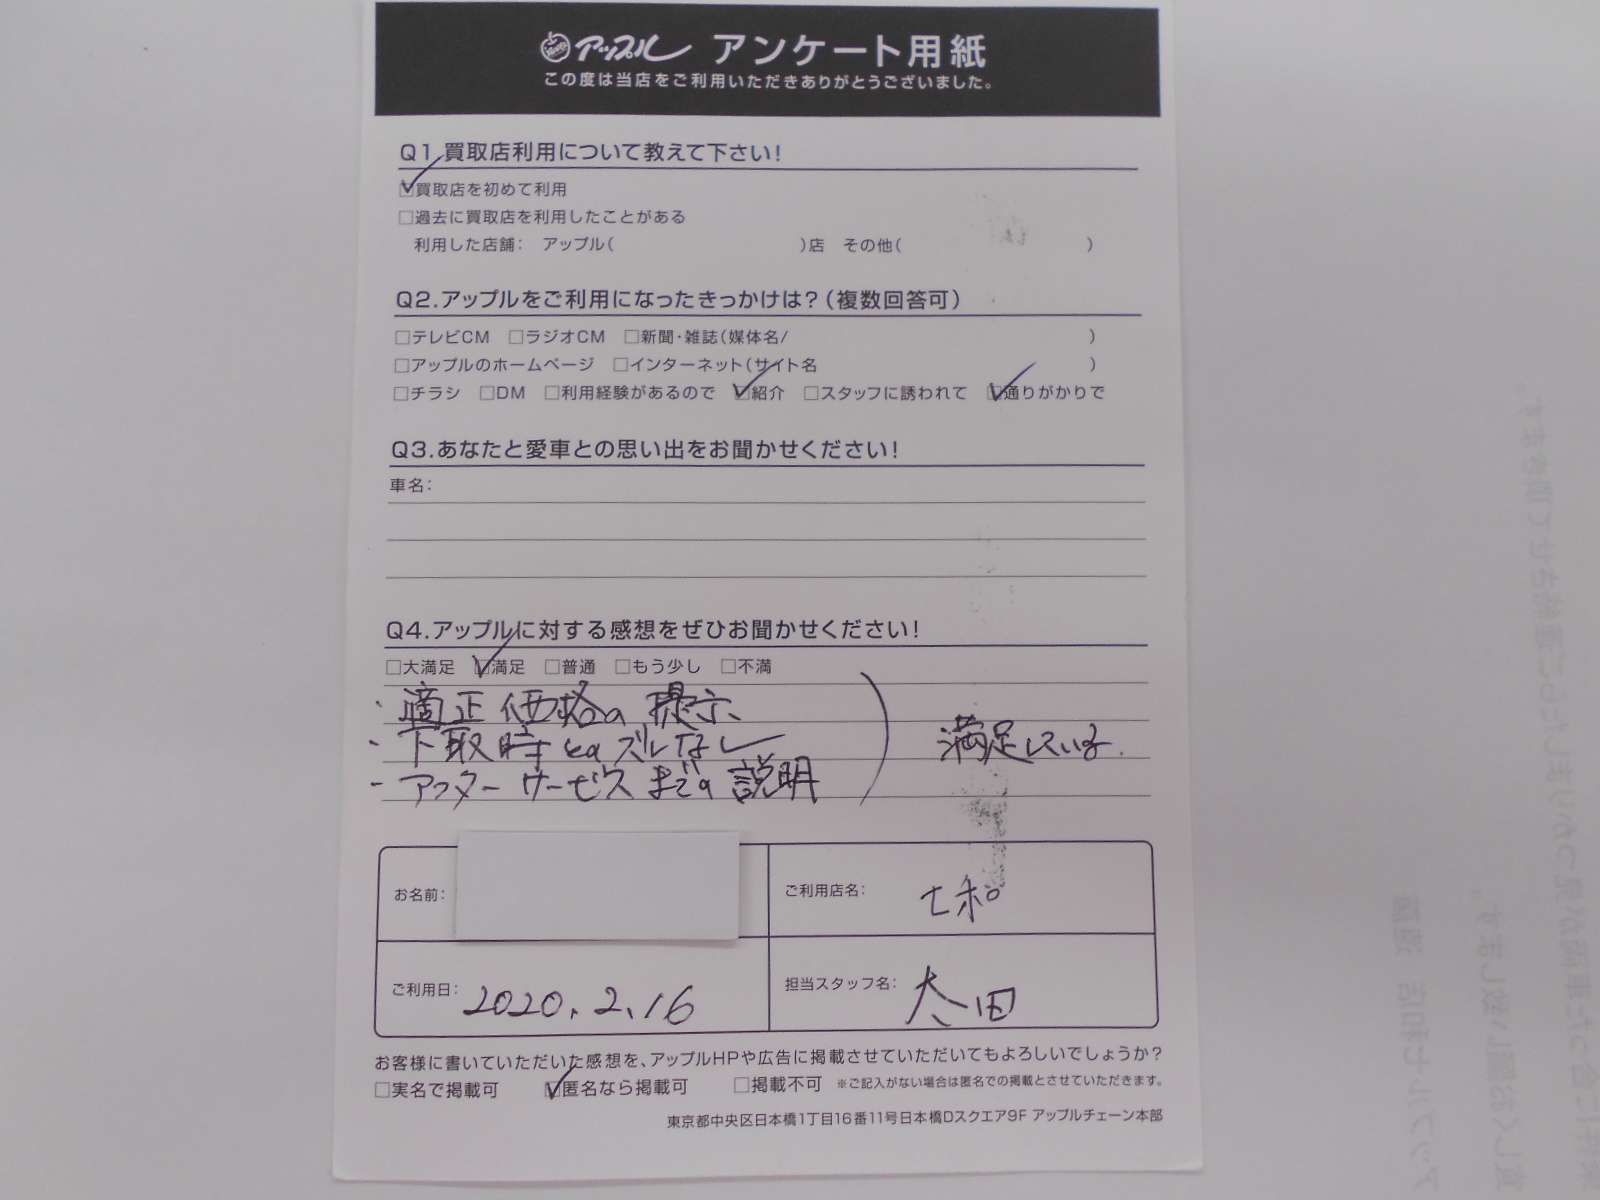 アップル アンケート用紙
この度は当店をご利用いただきありがとうございました。
Q1.買取店利用について教えて下さい!
☑買取店を初めて利用
□過去に買取店を利用したことがある
利用した店舗: アップル( )店 その他( )
Q2.アップルをご利用になったきっかけは?(複数回答可)
□テレビCM □ラジオCM □新聞・雑誌(媒体名/ )
□アップルのホームページ □インターネット(サイト名 )
□チラシ □DM □利用経験があるので ☑紹介 □スタッフに誘われて ☑通りがかりで
Q3.あなたと愛車との思い出をお聞かせください!
車名:
Q4.アップルに対する感想をぜひお聞かせください!
□大満足 ☑満足 □普通 □もう少し □不満
・適正価格の提示、
・下取時とのズレなし
・アフターサービスまでの説明
) 満足している.
お名前:
ご利用店名: 七和
ご利用日: 2020.2.16
担当スタッフ名: 太田
お客様に書いていただいた感想を、アップルHPや広告に掲載させていただいてもよろしいでしょうか?
□実名で掲載可 ☑匿名なら掲載可 □掲載不可 ※ご記入がない場合は匿名での掲載とさせていただきます。
東京都中央区日本橋1丁目16番11号日本橋Dスクエア9F アップルチェーン本部